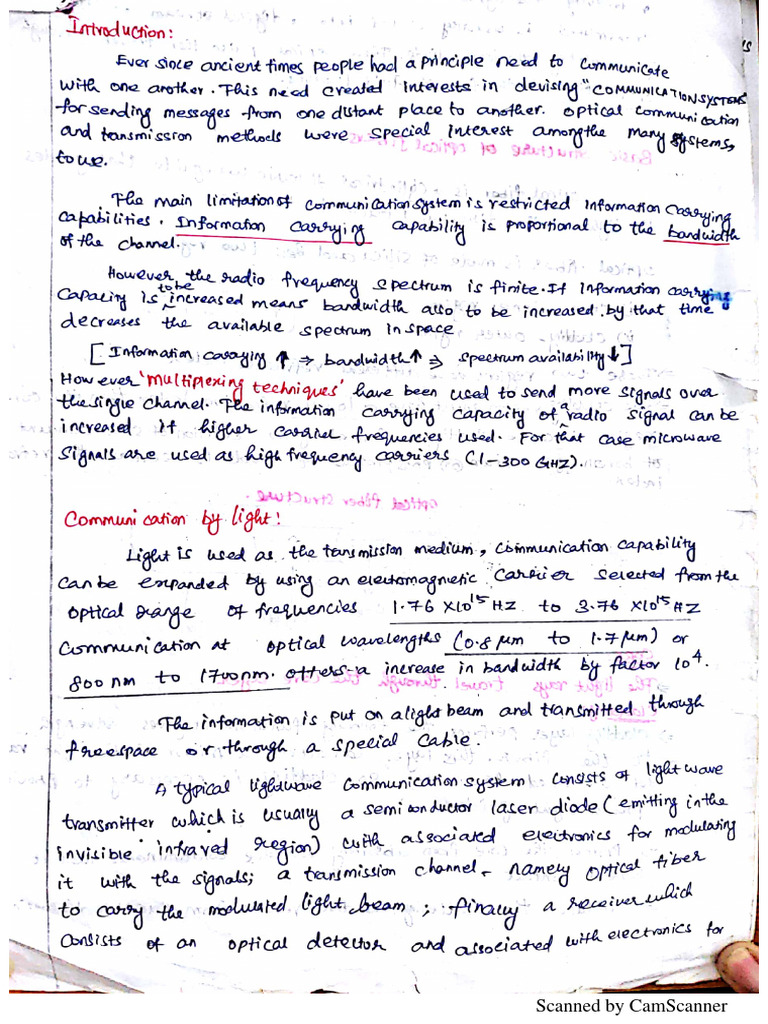 Introduction:
Ever since ancient times people had a principle need to communicate
with one another. This need created interests in devising "COMMUNICATION SYSTEMS"
for sending messages from one distant place to another. Optical communication
and transmission methods were special interest among the many systems,
to use.
The main limitation of communication system is restricted information carrying
capabilities. Information carrying capability is proportional to the bandwidth
of the channel.
However, the radio frequency spectrum is finite. If information carrying
capacity is to be increased means bandwidth also to be increased by that time
decreases the available spectrum in space
[Information carrying ↑ ⇒ bandwidth ↑ ⇒ spectrum availability ↓]
However 'multiplexing techniques' have been used to send more signals over
the single channel. The information carrying capacity of a radio signal can be
increased if higher carrier frequencies used. For that case microwave
signals are used as high frequency carriers (1-300 GHZ).
Communication by light:
Light is used as the transmission medium, communication capability
can be expanded by using an electomagnetic carrier selected from the
optical range of frequencies 1.76 X10¹⁵ HZ to 3.76 X10¹⁵ HZ
communication at optical wavelengths (0.8 μm to 1.7 μm) or
800 nm to 1700 nm. offers a increase in bandwidth by factor 10⁴.
The information is put on a light beam and transmitted through
freespace or through a special cable.
A typical lightwave communication system consists of light wave
transmitter which is usually a semiconductor laser diode (emitting in the
invisible infrared region) with associated electronics for modulating
it with the signals; a transmission channel - namely optical fiber
to carry the modulated light beam; finally a receiver which
consists of an optical detector and associated with electronics for
Scanned by CamScanner